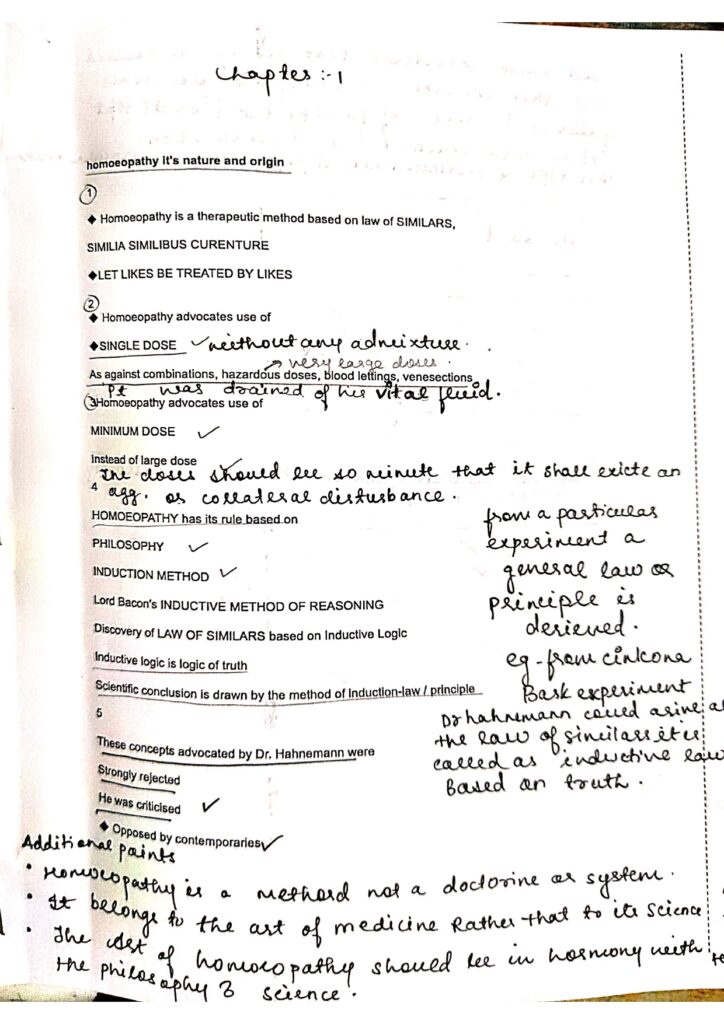 Chapter :- 1
homoeopathy it's nature and origin
1
◆ Homoeopathy is a therapeutic method based on law of SIMILARS,
SIMILIA SIMILIBUS CURENTURE
◆LET LIKES BE TREATED BY LIKES
2
◆ Homoeopathy advocates use of
◆SINGLE DOSE ✓ without any admixture.
→ very large doses.
As against combinations, hazardous doses, blood lettings, venesections
Pt was drained of his vital fluid.
3Homoeopathy advocates use of
MINIMUM DOSE ✓
Instead of large dose
The doses should be so minute that it shall exicte an
4 agg. or collateral disturbance.
HOMOEOPATHY has its rule based on
PHILOSOPHY ✓
INDUCTION METHOD ✓
Lord Bacon's INDUCTIVE METHOD OF REASONING
Discovery of LAW OF SIMILARS based on Inductive Logic
Inductive logic is logic of truth
Scientific conclusion is drawn by the method of Induction-law / principle
from a particular
experiment a
general law or
principle is
derieved.
eg - from cinkona
Bark experiment
Dr hahnemann could arive at
the law of similars it is
called as inductive law
Based on truth.
5
These concepts advocated by Dr. Hahnemann were
Strongly rejected
He was criticised ✓
◆ Opposed by contemporaries ✓
Additional points
• Homoeopathy is a method not a doctorine or system.
• It belongs to the art of medicine Rather that to its Science
• The art of homoeopathy should be in harmony with
the philosophy & science.